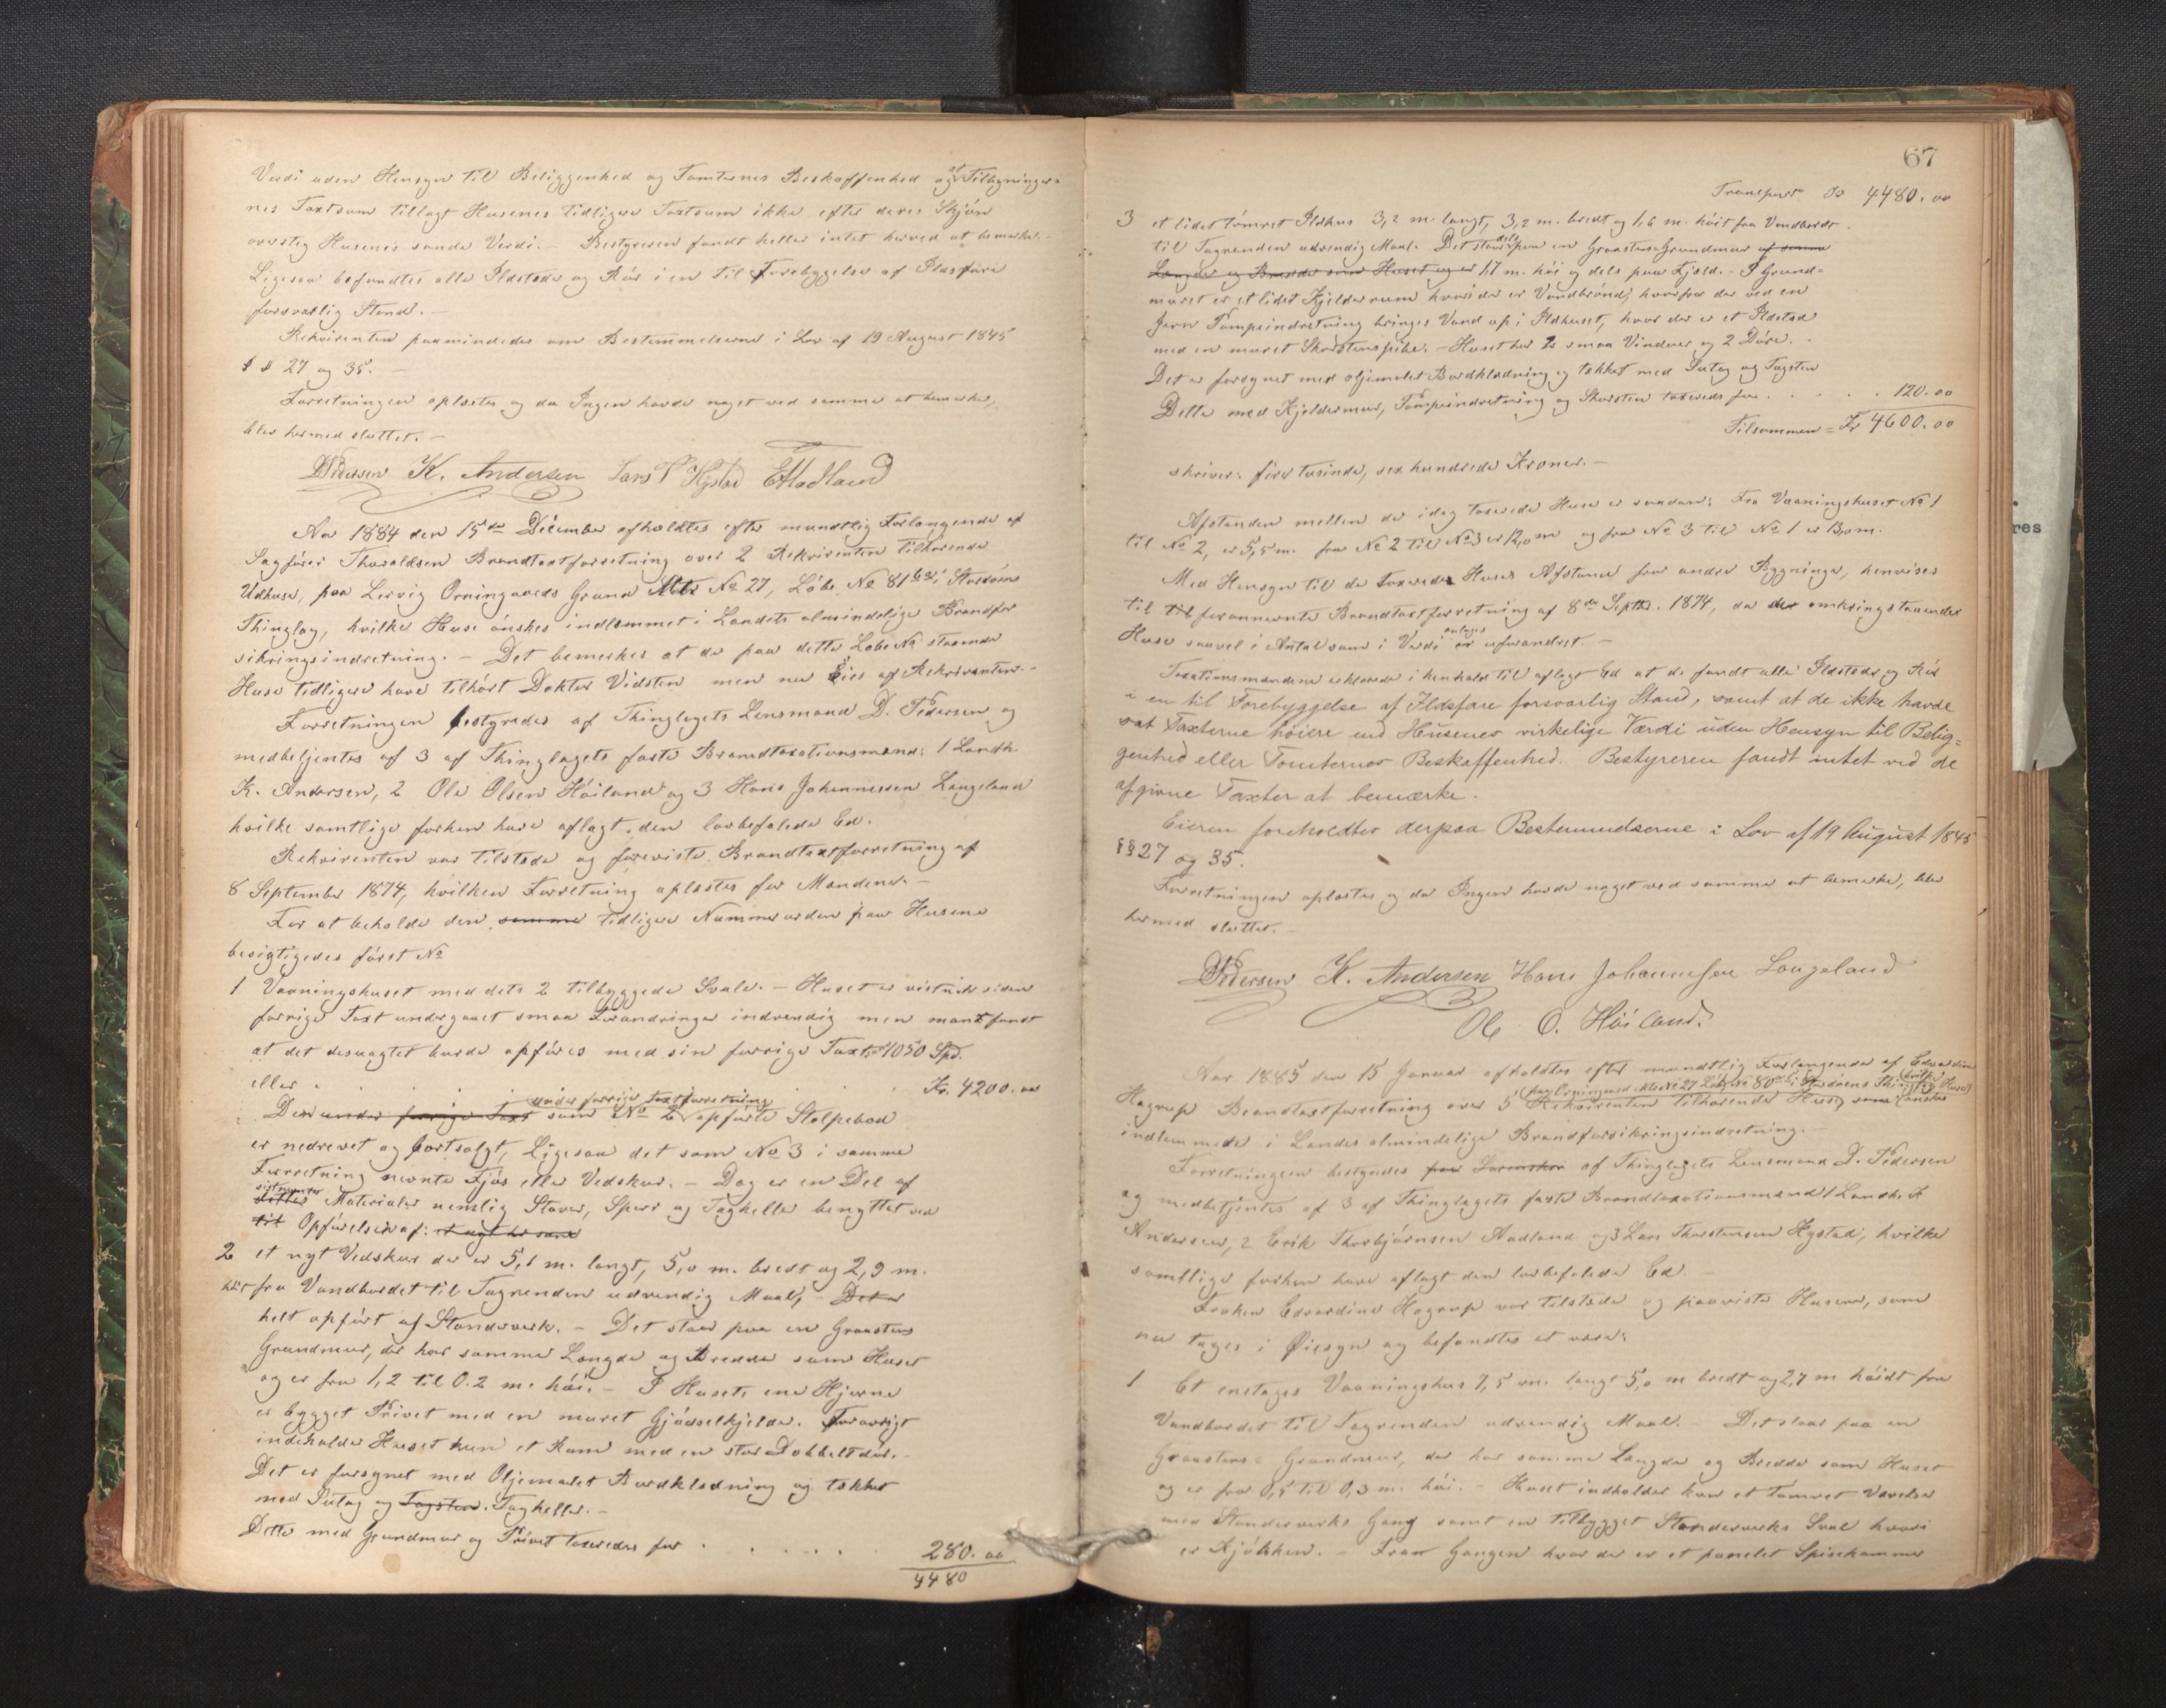 Verdi uden Hensyn til Beliggenhed og Tomternes Beskaffenhed og at Tilbygninger-
nes Taxtsum tillagt Husenes tidligere Taxtsum ikke efter deres Skjön
oversteg Husenes sande Verdi. - Bestyreren fandt heller intet herved at bemerke. -
Ligesaa befandtes alle Ildsteder og Rör i en til Forebyggelse af Ildsfare
forsvarlig Stand. -
Rekvirenten paamindedes om Bestemmelserne i Lov af 19 August 1845
§ § 27 og 35. -
Forretningen oplæstes og da Ingen havde noget ved samme at bemerke,
blev hermed sluttet. -
DPedersen K. Andersen Lars T Hystad EAadland
Aar 1884 den 15de December afholdtes efter mundtlig Forlangende af
Sagförer Thoraldsen Brandtaxtforretning over 2 Rekvirenten tilhörende
Udhuse, paa Lervig Orningaards Grund Mtr No 27, Löbe No 81 i Stordöens
Thinglag, hvilke Huse önskes indlemmet i Landets almindelige Brandfor
sikringsindretning. - Det bemerkes at de paa dette Löbe No staaende
Huse tidligere have tilhört Doktor Vidsten men nu Eies af Rekvirenten. -
Forretningen bestyredes af Thinglagets Lensmand D. Pedersen og
medbetjentes af 3 af Thinglagets faste Brandtaxationsmænd: 1 Landh.
K. Andersen, 2 Ole Olsen Höiland og 3 Hans Johannessen Langeland
hvilke samtlige forhen have aflagt den lovbefalede Ed.
Rekvirenten var tilstede og foreviste Brandtaxtforretning af
8 September 1874, hvilken Forretning oplæstes for Mændene. -
For at beholde den samme tidligere Nummerorden paa Husene
besigtigedes först No
1 Vaaningshuset med dets 2 tilbyggede Svale. - Huset er vistnok siden
forrige Taxt undergaaet smaa Forandringer indvendig men mant fandt
at det desuagtet burde opföres med sin forrige Taxt, 1050 Spd.
eller . . . . . . Kr. 4200.00
Den under forrige Taxt under forrige Taxtforretning som No 2 opförte Stolpebod
er nedrevet og bortsolgt, Ligesaa det som No 3 i samme
Forretning nevnte Fjös eller Vedskur. - Dog er en Del af
dettes sistnevntes Materialer nemlig Stover, Sperr og Tagheller benyttet ved
til Opförelsen af: et nyt her som
2 et nyt Vedskur der er 5,1 m. langt, 5,0 m. bredt og 2,9 m.
höit fra Vandbordet til Tagrenden udvendig Maal, - Det er
helt opfört af Standverk. - Det staar paa en Graastens
Grundmur, der har samme Længde og Bredde som Huset
og er fra 1,2 til 0.2 m. höi. - I Husets ene Hjörne
er bygget Privet med en muret Gjödselkjelder. Forövrigt
indeholder Huset kun et Rum med en stor Dobbeltdör. -
Det er forsynet med Oljemalet Bordklædning og tækket
med Sutag og Tagsten. Tagheller. -
Dette med Grundmur og Privet taxeredes for . . . . . 280.00
4480
67
Transport Kr 4480.00
3 et lidet tömret Ildhus 3,2 m. langt, 3,2 m. bredt og 1,6 m. höit fra Vandbordet
til Tagrenden udvendig Maal. Det staar dels paa en Graastens Grundmur af samme
Længde og Bredde som Huset og er 1,7 m. höi og dels paa Fjeld. - I Grund-
muret er et lidet Kjelderrum hvori der er Vandbrönd, hvorfra der ved en
Jern Pompeindretning bringes Vand op i Ildhuset, hvor der er et Ildsted
med en muret Skorstenspibe. - Huset har 2 smaa Vinduer og 2 Döre. -
Det er forsynet med oljemalet Bordklædning og tækket med Sutag og Tagsten
Dette med Kjeldermur, Pompeindretning og Skorsten taxeredes for . . . . . 120.00
Tilsammen = Kr 4600.00
skriver: fire tusinde, sex hundrede Kroner. -
Afstanden mellem de idag taxerede Huse er saadan: Fra Vaaningshuset No 1
til No 2, er 5,5 m. fra No 2 til No 3 er 12,0 m og fra No 3 til No 1 er 13,0 m.
Med Hensyn til de taxerede Huses Afstand fra andre Bygninger, henvises
til til forannevnte Brandtaxtforretning af 8de Septbr. 1874, da der omkringstaaende
Huse saavel i Antal som i Verdi er antages uforandret. -
Taxationsmændene erklærede i henhold til aflagt Ed at de fandt alle Ildsteder og Rör
i en til Forebyggelse af Ildsfare forsvarlig Stand, samt at de ikke havde
sat Taxterne höiere end Husenes virkelige Værdi uden Hensyn til Belig=
genhed eller Tomternes Beskaffenhed. Bestyreren fandt intet ved de
afgivne Taxter at bemærke.
Eieren foreholdtes derpaa Bestemmelserne i Lov af 19 August 1845
§§ 27 og 35.
Forretningen oplæstes og da Ingen havde noget ved samme at bemerke, blev
hermed sluttet. -
DPedersen K. Andersen Hans Johannesen Langeland
Ole O. Höiland.
Aar 1885 den 15 Januar afholdtes efter mundtlig Forlangende af Edvardine
(paa Orningaard Mtr No 27 Löbe No 80 i Stordöens Thinglag) (hvilke Huse)
Hagrup Brandtaxtforretning over 5 Rekvirenten tilhörende Huse som önskes
indlemmede i Landets almindelige Brandforsikringsindretning. -
Forretningen bestyredes af Thinglagets Lensmand D. Pedersen
og medbetjentes af 3 af Thinglagets faste Brandtaxationsmænd 1 Landh. K
Andersen, 2 Erik Thorbjörnsen Aadland og 3 Lars Thorstensen Hystad, hvilke
samtlige forhen have aflagt den lovbefalede Ed. -
Fröken Edvardine Hagrup var tilstede og paaviste Husene, som
nu toges i Öiesyn og befandtes at være:
1 Et enetages Vaaningshus 7,5 m. langt 5,0 m bredt og 2,7 m höidt fra
Vandbordet til Tagrenden udvendig Maal. - Det staar paa en
Graastens- Grundmur, der har samme Længde og Bredde som Huset
og er fra 0,5 til 0,3 m. höi. - Huset indholder kun et tömret Værelse
med Standerverks Gang samt en tilbygget Standerverks Sval hvori
er Kjökken. - Fra Gangen hvor der er et panelet Spisekammer